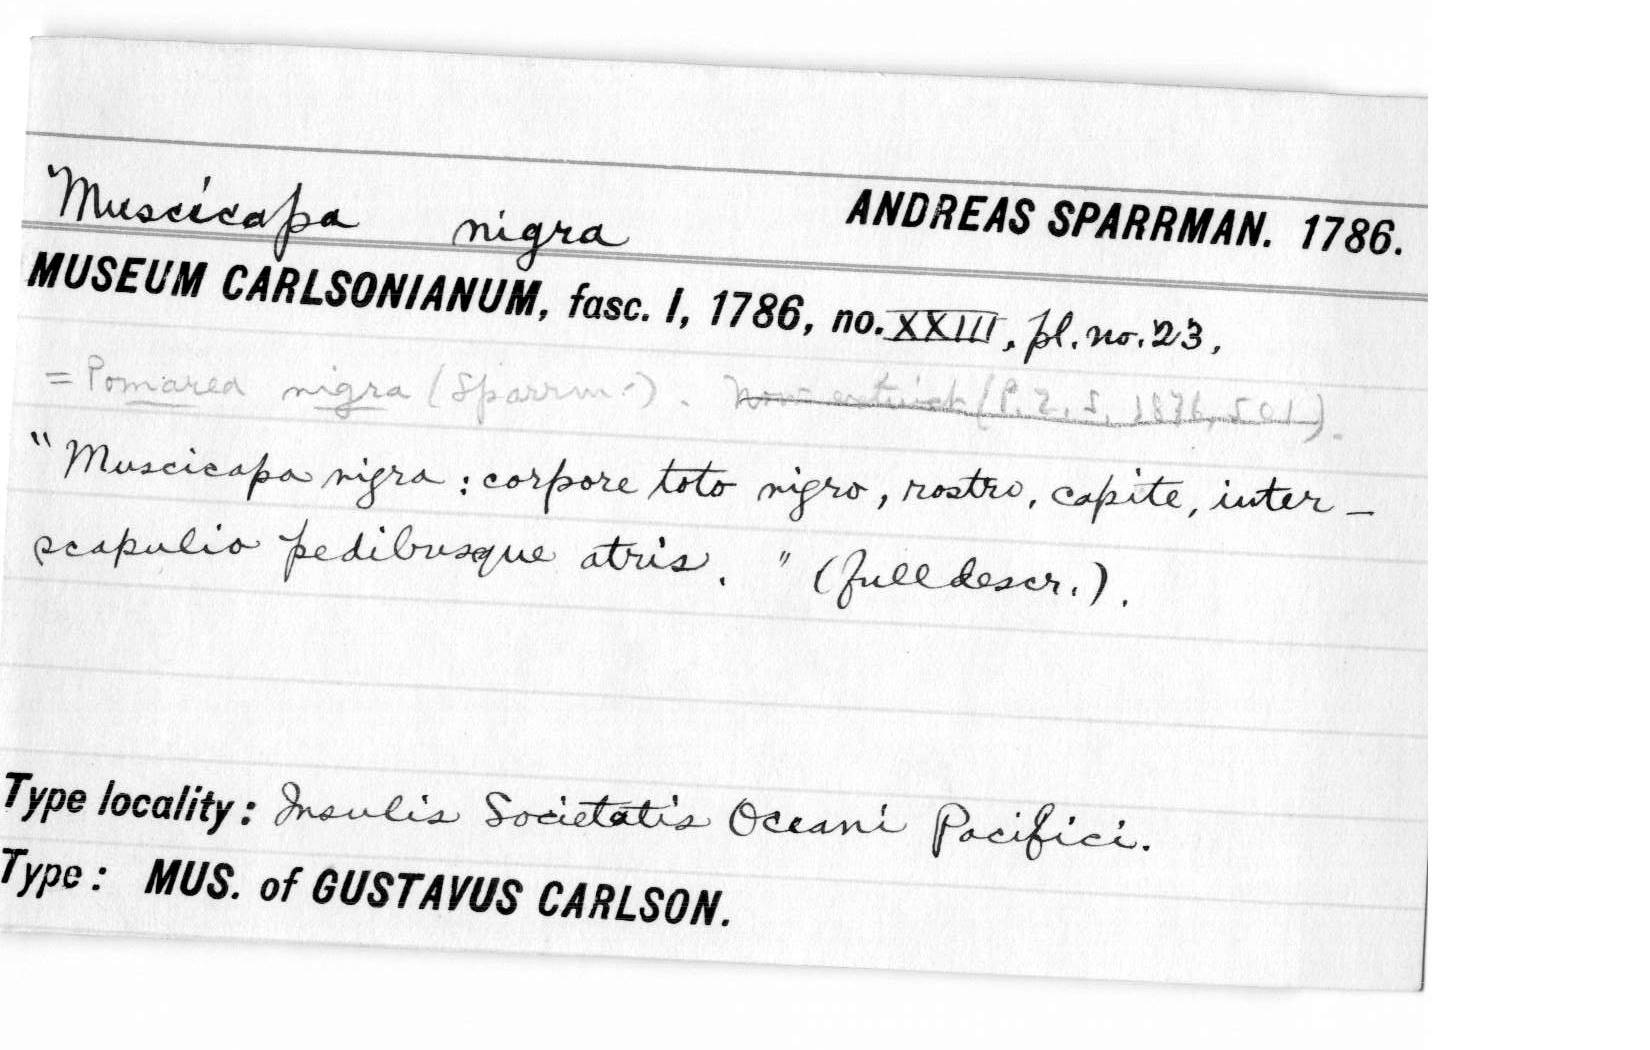 Muscicapa nigra ANDREAS SPARRMAN. 1786.
MUSEUM CARLSONIANUM, fasc. I, 1786, no. XXIII, pl. no. 23,
= Pomarea nigra (Sparrm.). Now extinct (P. Z. S. 1876, 501).
"Muscicapa nigra : corpore toto nigro, rostro, capite, inter-
scapulio pedibusque atris." (full descr.).
Type locality: Insulis Societatis Oceani Pacifici.
Type: MUS. of GUSTAVUS CARLSON.